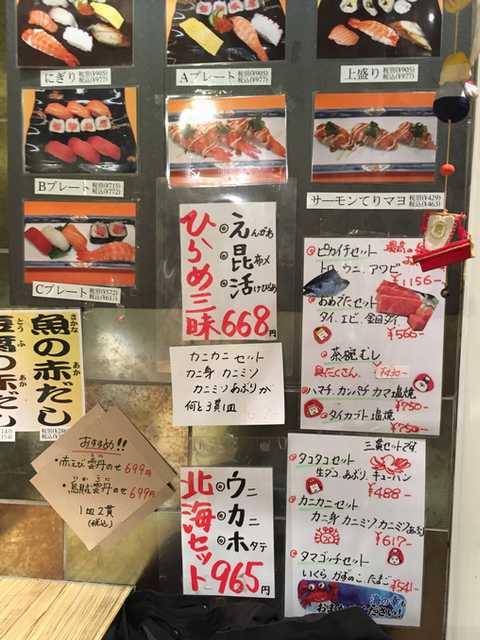 にぎり 税別(¥905) 税込(¥977)
Aプレート 税別(¥905) 税込(¥977)
上盛り 税別(¥905) 税込(¥977)
Bプレート 税別(¥715) 税込(¥772)
サーモンてりマヨ 税別(¥429) 税込(¥463)
Cプレート 税別(¥572) 税込(¥617)
ひらめ三昧668円
えんがわ
昆布〆
活けひらめ
ピカイチセット
トロ、ウニ、アワビ
¥1156-
おめでたセット
タイ、エビ、金目タイ
¥566-
茶碗むし
具たくさん
ハマチ、カンパチ カマ塩焼
¥750-
タイカブト塩焼
¥750-
魚の赤だし
さかな
あか
豆腐の赤だし
とうふ
あか
カニカニ セット
カニ身 カニミソ
カニミソあぶりが
何と3貫1皿
おすすめ!!
・赤えび雲丹のせ 699円
・烏賊雲丹のせ 699円
1皿2貫
(税込)
北海セット965円
ウニ
カニ
ホタテ
三貫セットです
タコタコセット
生ダコ、あぶり、チューバン
¥488-
カニカニセット
カニ身 カニミソ カニミソあぶり
¥617-
タマゴッチセット
いくら かずのこ たまご
¥541-